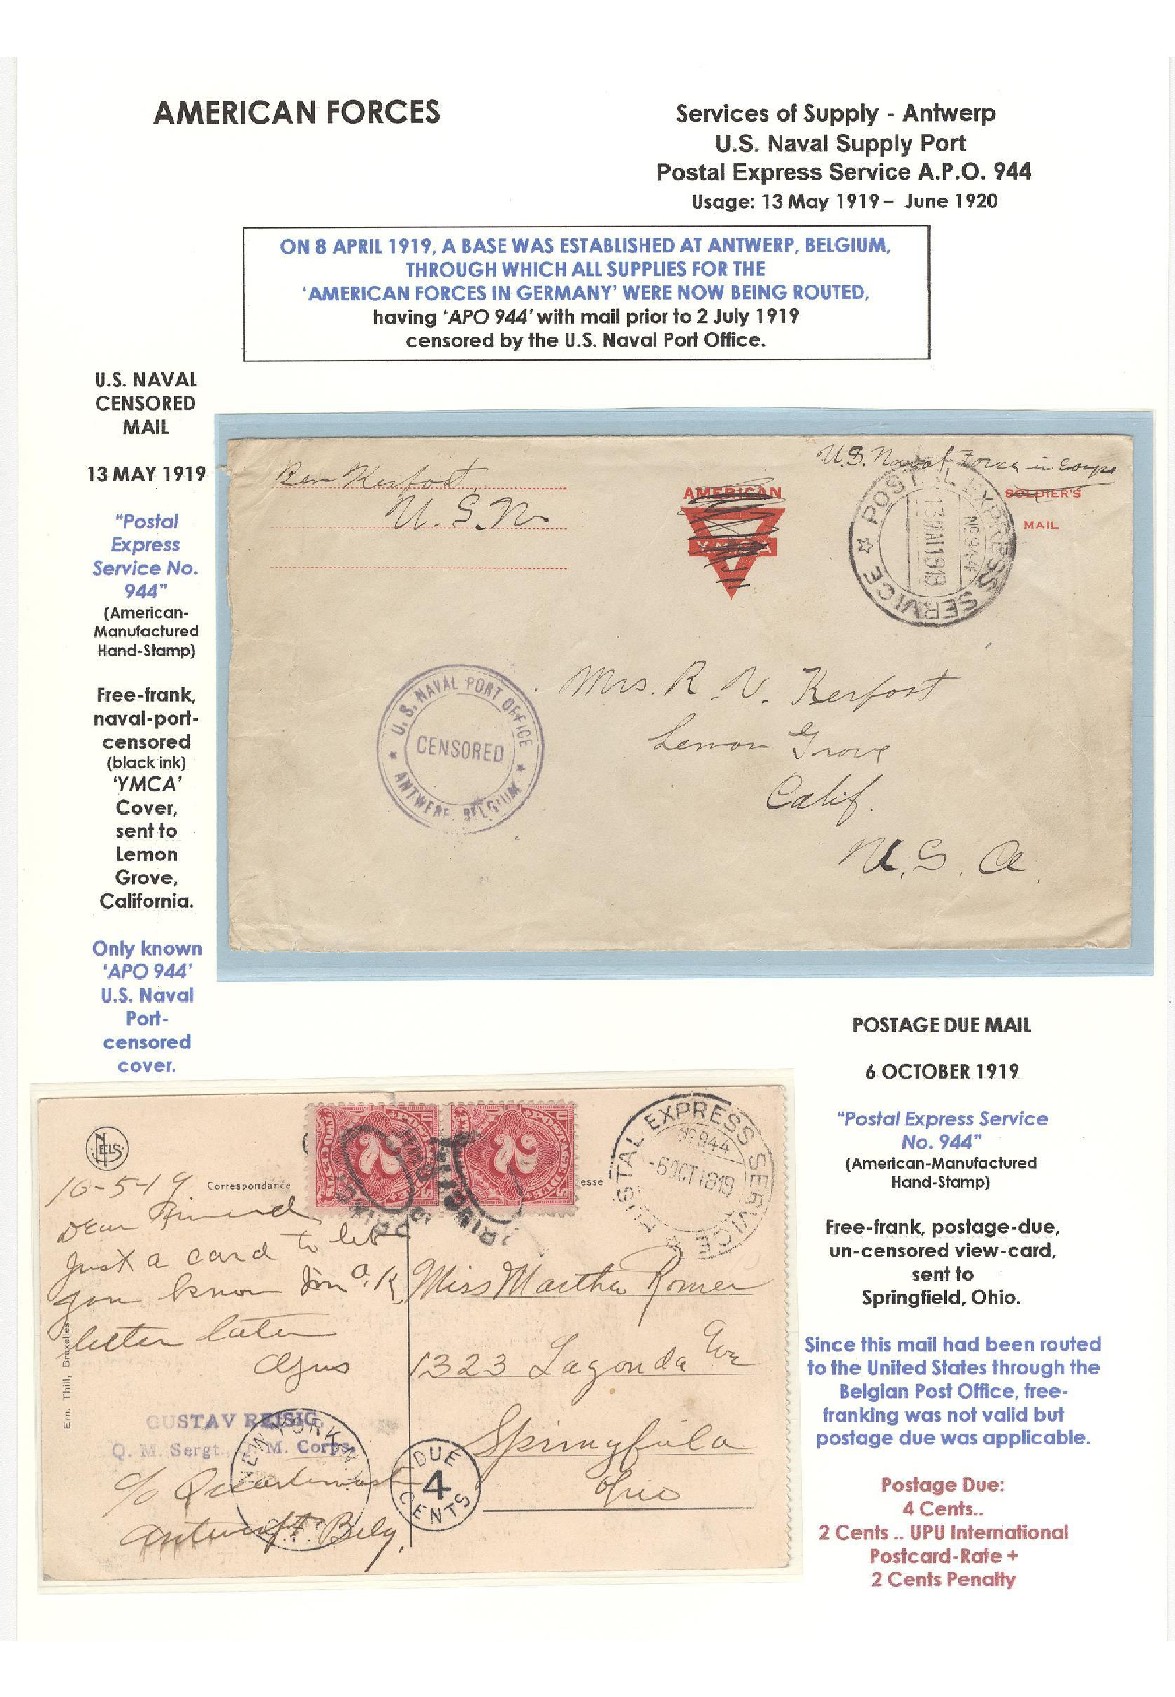 AMERICAN FORCES
Services of Supply - Antwerp
U.S. Naval Supply Port
Postal Express Service A.P.O. 944
Usage: 13 May 1919 – June 1920
ON 8 APRIL 1919, A BASE WAS ESTABLISHED AT ANTWERP, BELGIUM,
THROUGH WHICH ALL SUPPLIES FOR THE
'AMERICAN FORCES IN GERMANY' WERE NOW BEING ROUTED,
having 'APO 944' with mail prior to 2 July 1919
censored by the U.S. Naval Port Office.
U.S. NAVAL
CENSORED
MAIL
13 MAY 1919
"Postal
Express
Service No.
944"
(American-
Manufactured
Hand-Stamp)
Free-frank,
naval-port-
censored
(black ink)
'YMCA'
Cover,
sent to
Lemon
Grove,
California.
Only known
'APO 944'
U.S. Naval
Port-
censored
cover.
Ben Kerfoot
U.S.N.
U.S. Naval Force in
AMERICAN
Y.M.C.A
SOLDIER'S
MAIL
POSTAL EXPRESS SERVICE
NO 944
13 MAI 1919
U.S. NAVAL PORT OFFICE
CENSORED
ANTWERP, BELGIUM
Mrs. R. N. Kerfoot
Lemon Grove
Calif.
U.S.A.
POSTAGE DUE MAIL
6 OCTOBER 1919
"Postal Express Service
No. 944"
(American-Manufactured
Hand-Stamp)
Free-frank, postage-due,
un-censored view-card,
sent to
Springfield, Ohio.
Since this mail had been routed
to the United States through the
Belgian Post Office, free-
franking was not valid but
postage due was applicable.
Postage Due:
4 Cents..
2 Cents .. UPU International
Postcard-Rate +
2 Cents Penalty
NELS
Correspondance
esse
2
2
POSTAL EXPRESS SERVICE
NO 944
-6 OCT 1919
10-5-19
Dear Friend
Just a card to let
you know I'm O.K.
letter later
Agus
Miss Martha Romer
1323 Lagonda Ave
Springfield
Ohio
Ern. Thill, Bruxelles
GUSTAV REISIG,
Q. M. Sergt., Q. M. Corps,
c/o Quartermaster
Antwerp Belg.
NEW YORK N.Y.
DUE
4
CENTS